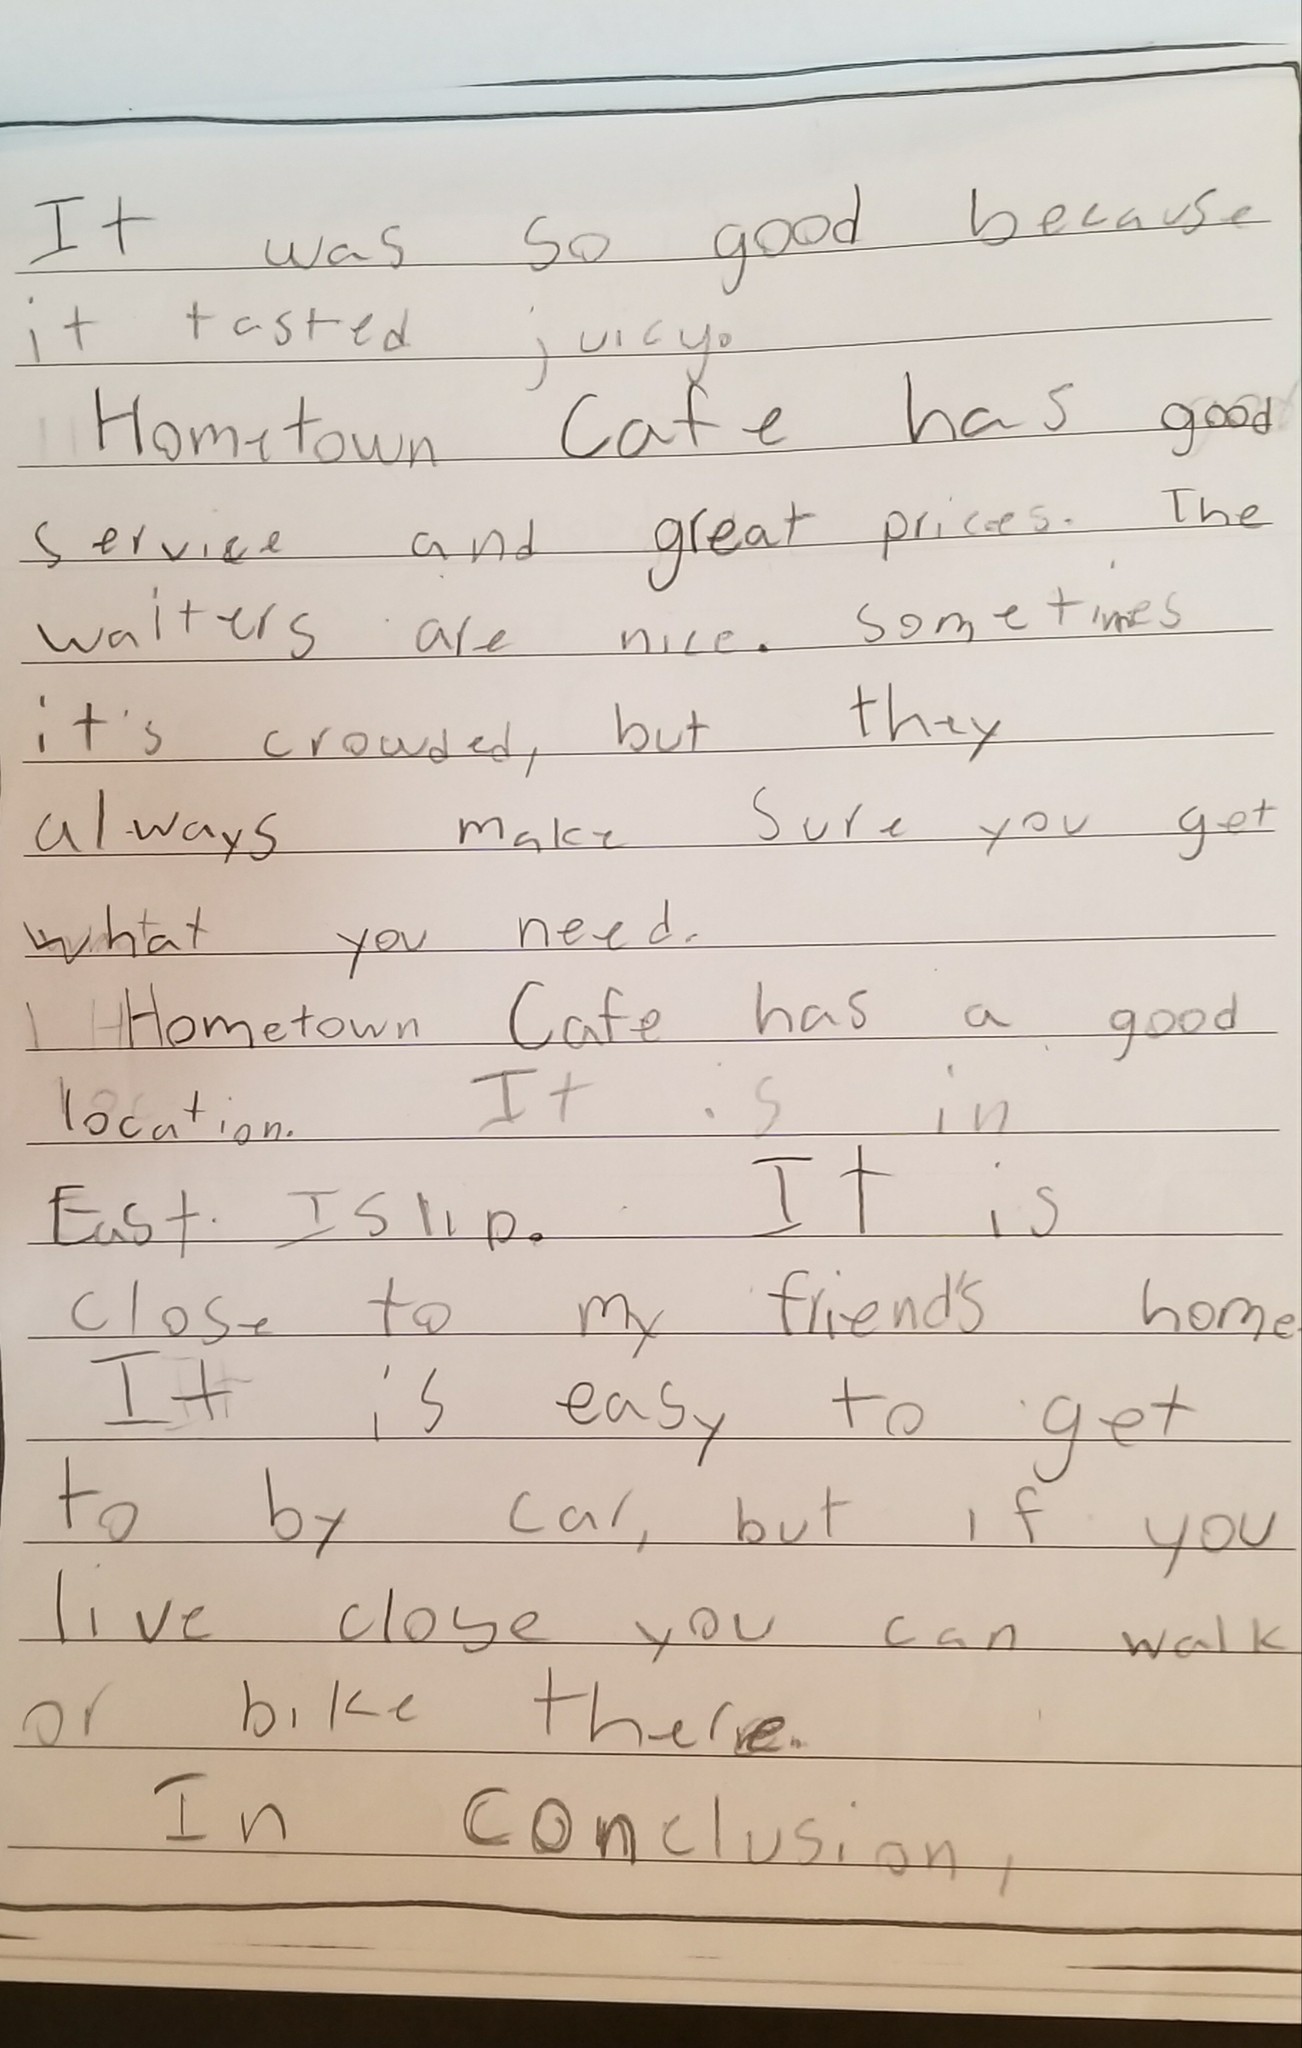 It was so good because
it tasted juicy.
Hometown Cafe has good
service and great prices. The
waiters are nice. sometimes
it's crowded, but they
always make sure you get
what you need.
Hometown Cafe has a good
location. It is in
East Islip. It is
close to my friend's home.
It is easy to get
to by car, but if you
live close you can walk
or bike there.
In conclusion,